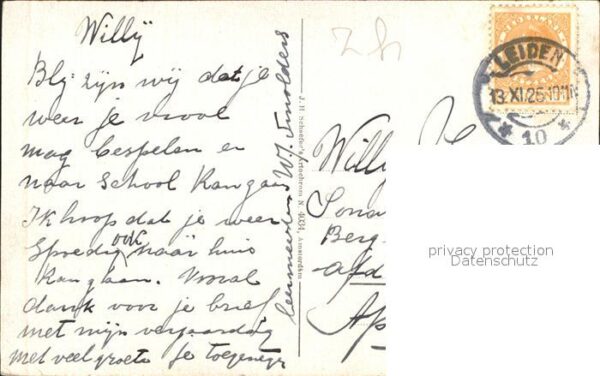 Willÿ
Blÿ zÿn wÿ dat je
weer je viool
mag bespelen en
naar School kan gaan
Ik hoop dat je weer
spoedig ook naar huis
kan gaan. Vooral
dank voor je brief
met mijn verjaardag
met veel groeten je toegenegen
leermeester W.J. Smolders
J. H. Schaefer's Amsterdam
Will
Berg
afd
Ap
LEIDEN
13.XI.25
10
privacy protection
Datenschutz